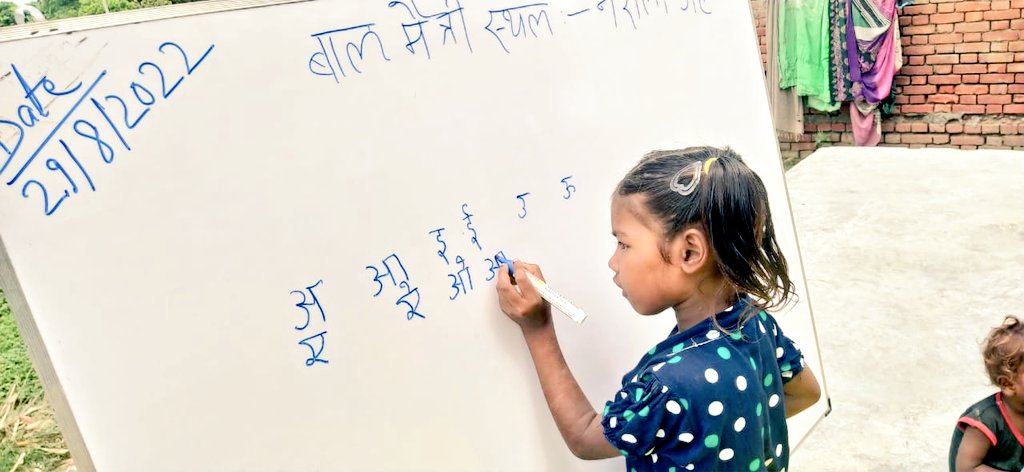 Date
29/8/2022
बाल मैत्री स्थल :-
अ आ इ ई उ ऊ
ए ऐ ओ